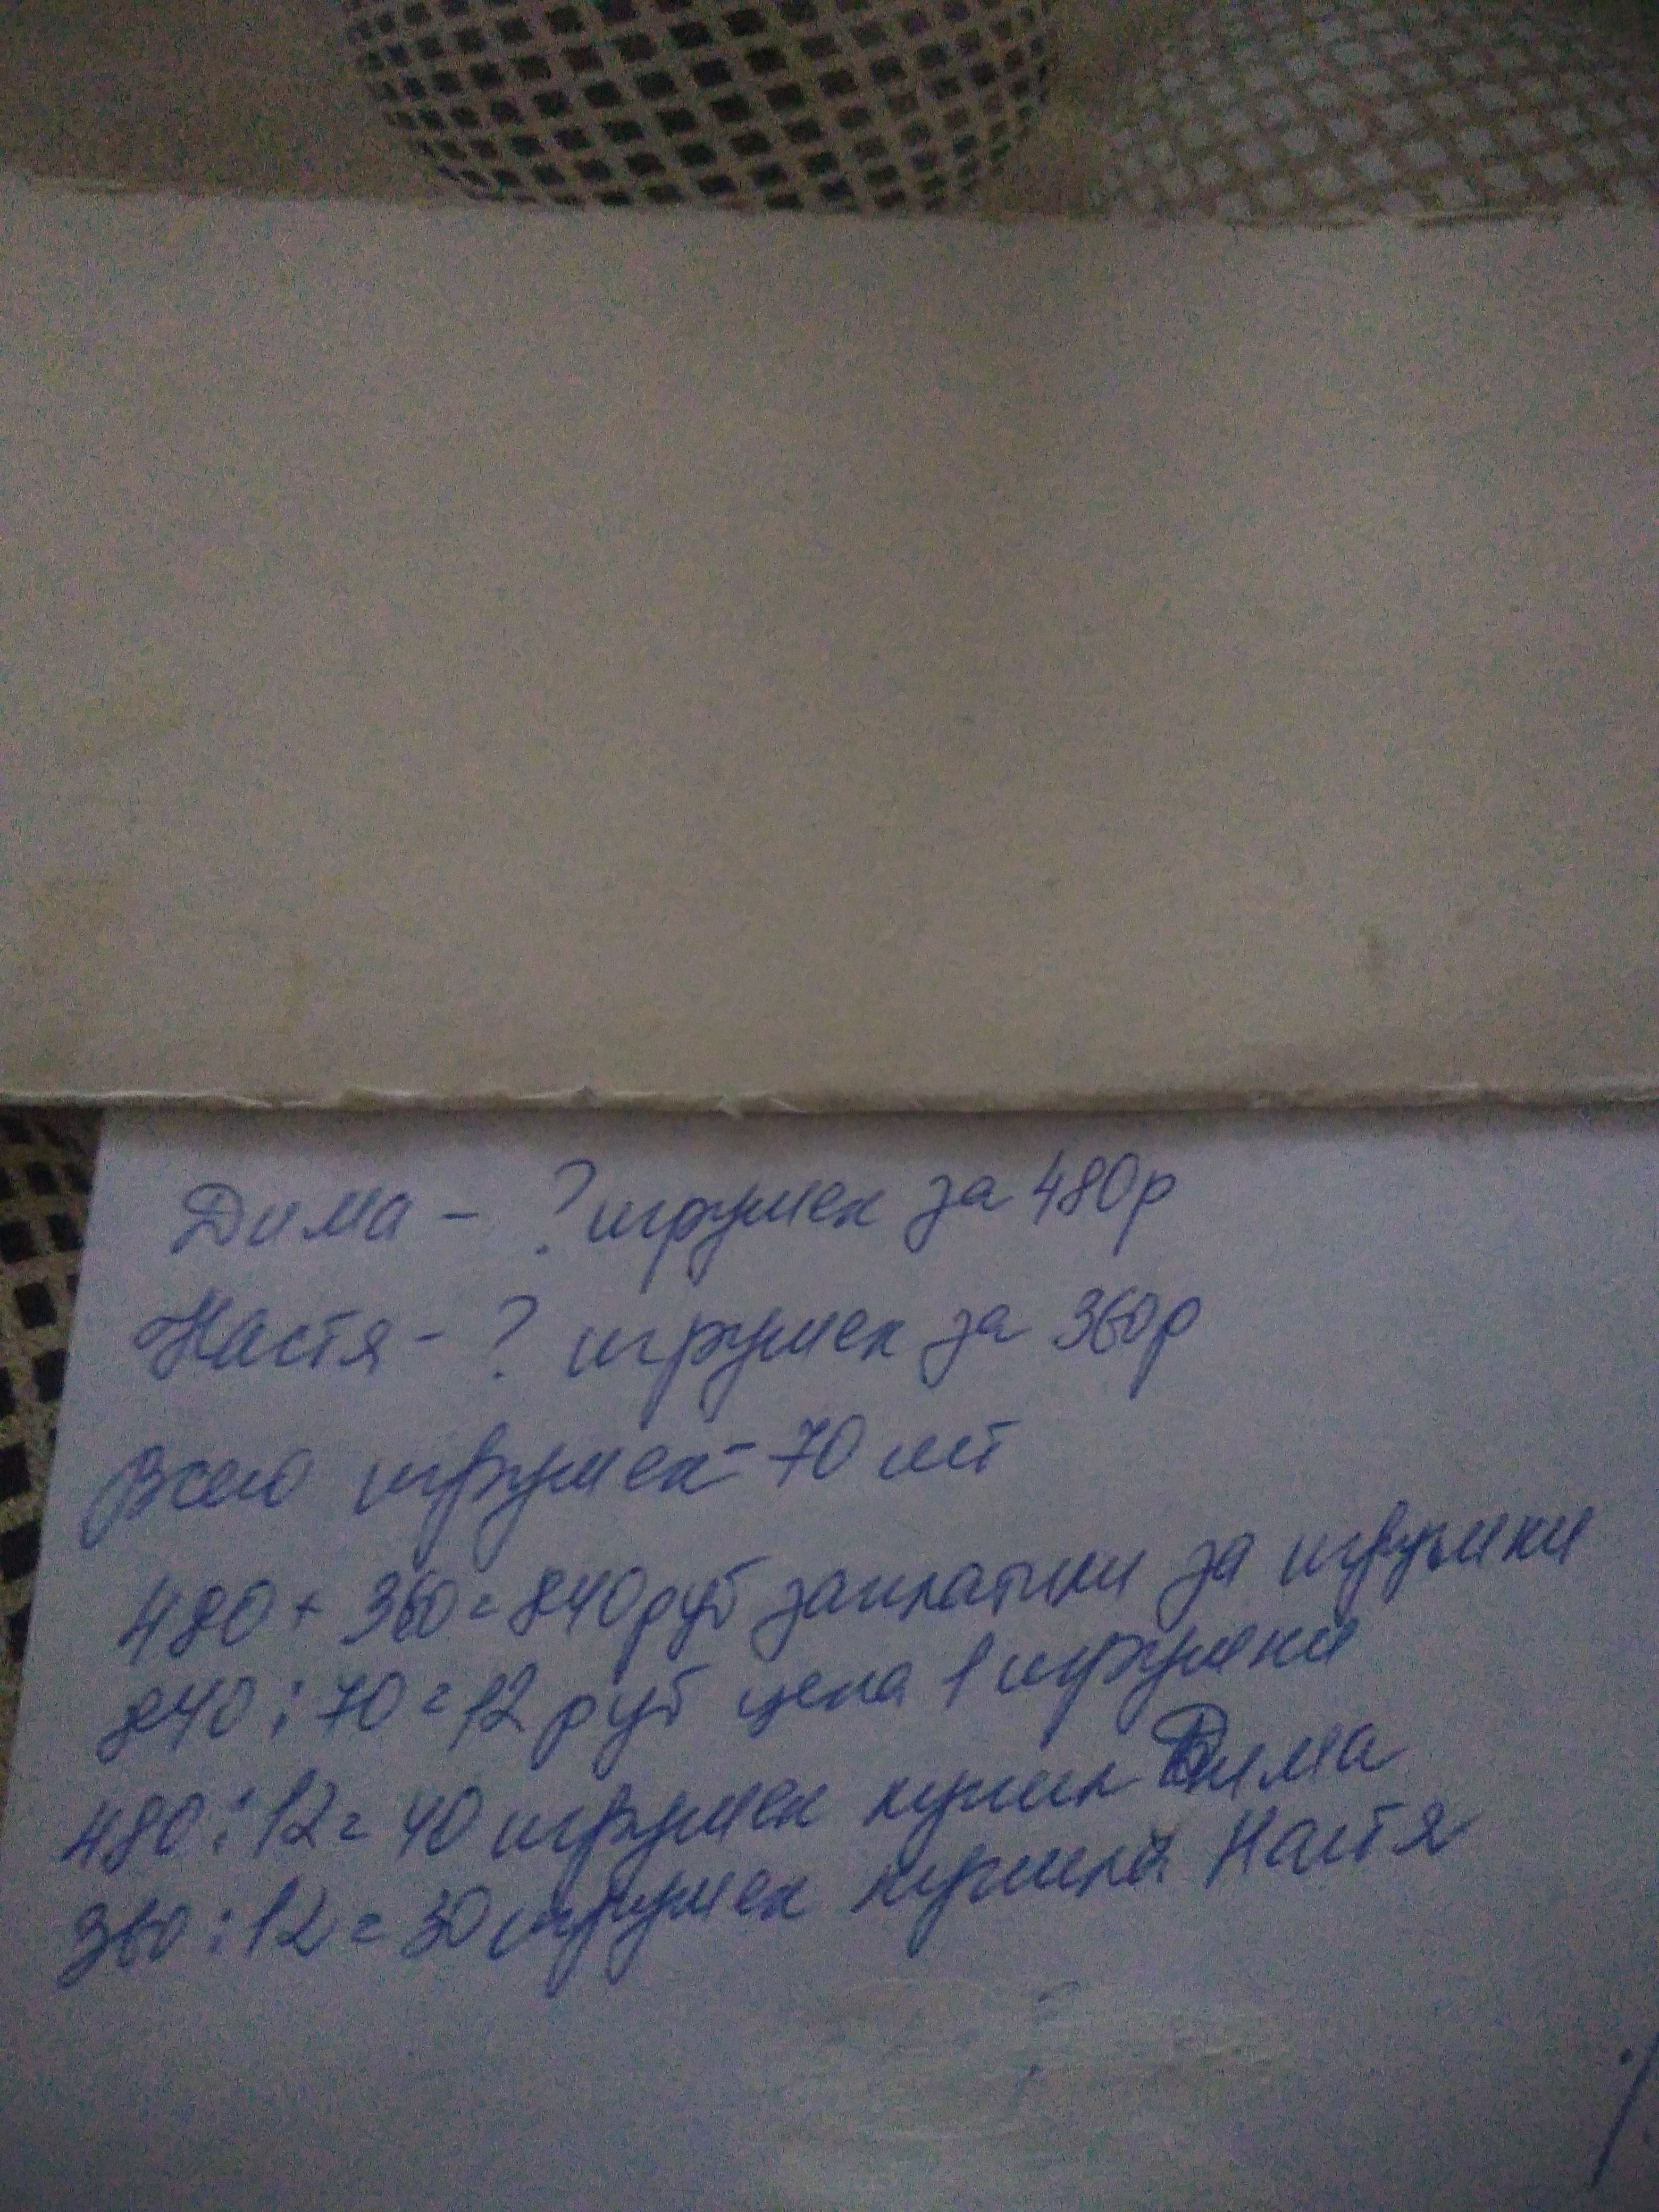 Дима - ? игрушек за 480р
Настя - ? игрушек за 360р
Всего игрушек - 70 шт
480 + 360 = 840 руб заплатили за игрушки
840 : 70 = 12 руб цена 1 игрушки
480 : 12 = 40 игрушек купил Дима
360 : 12 = 30 игрушек купила Настя